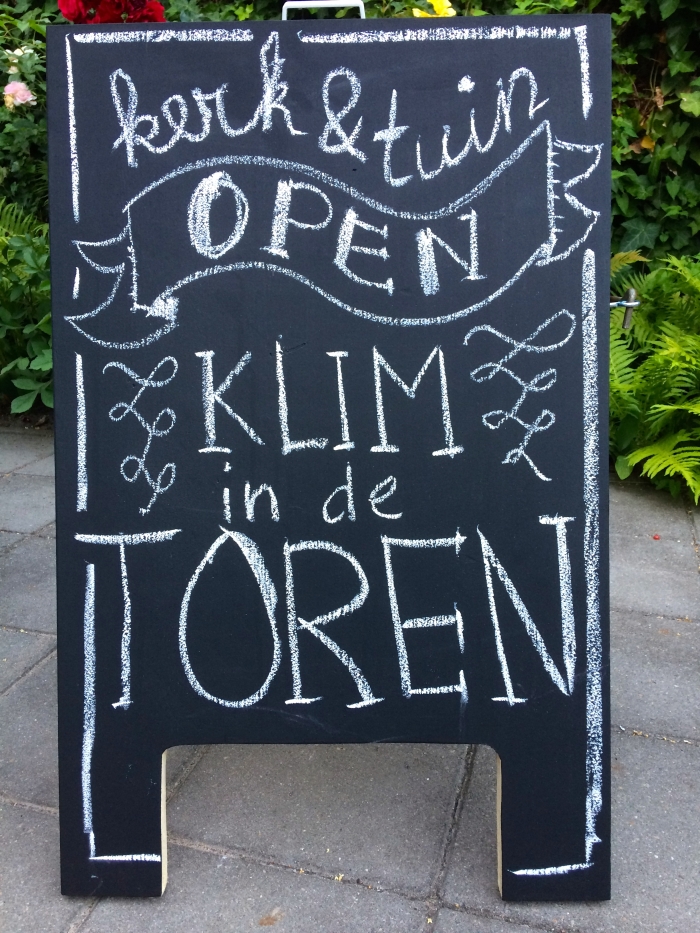 kerk & tuin
OPEN
KLIM
in de
TOREN